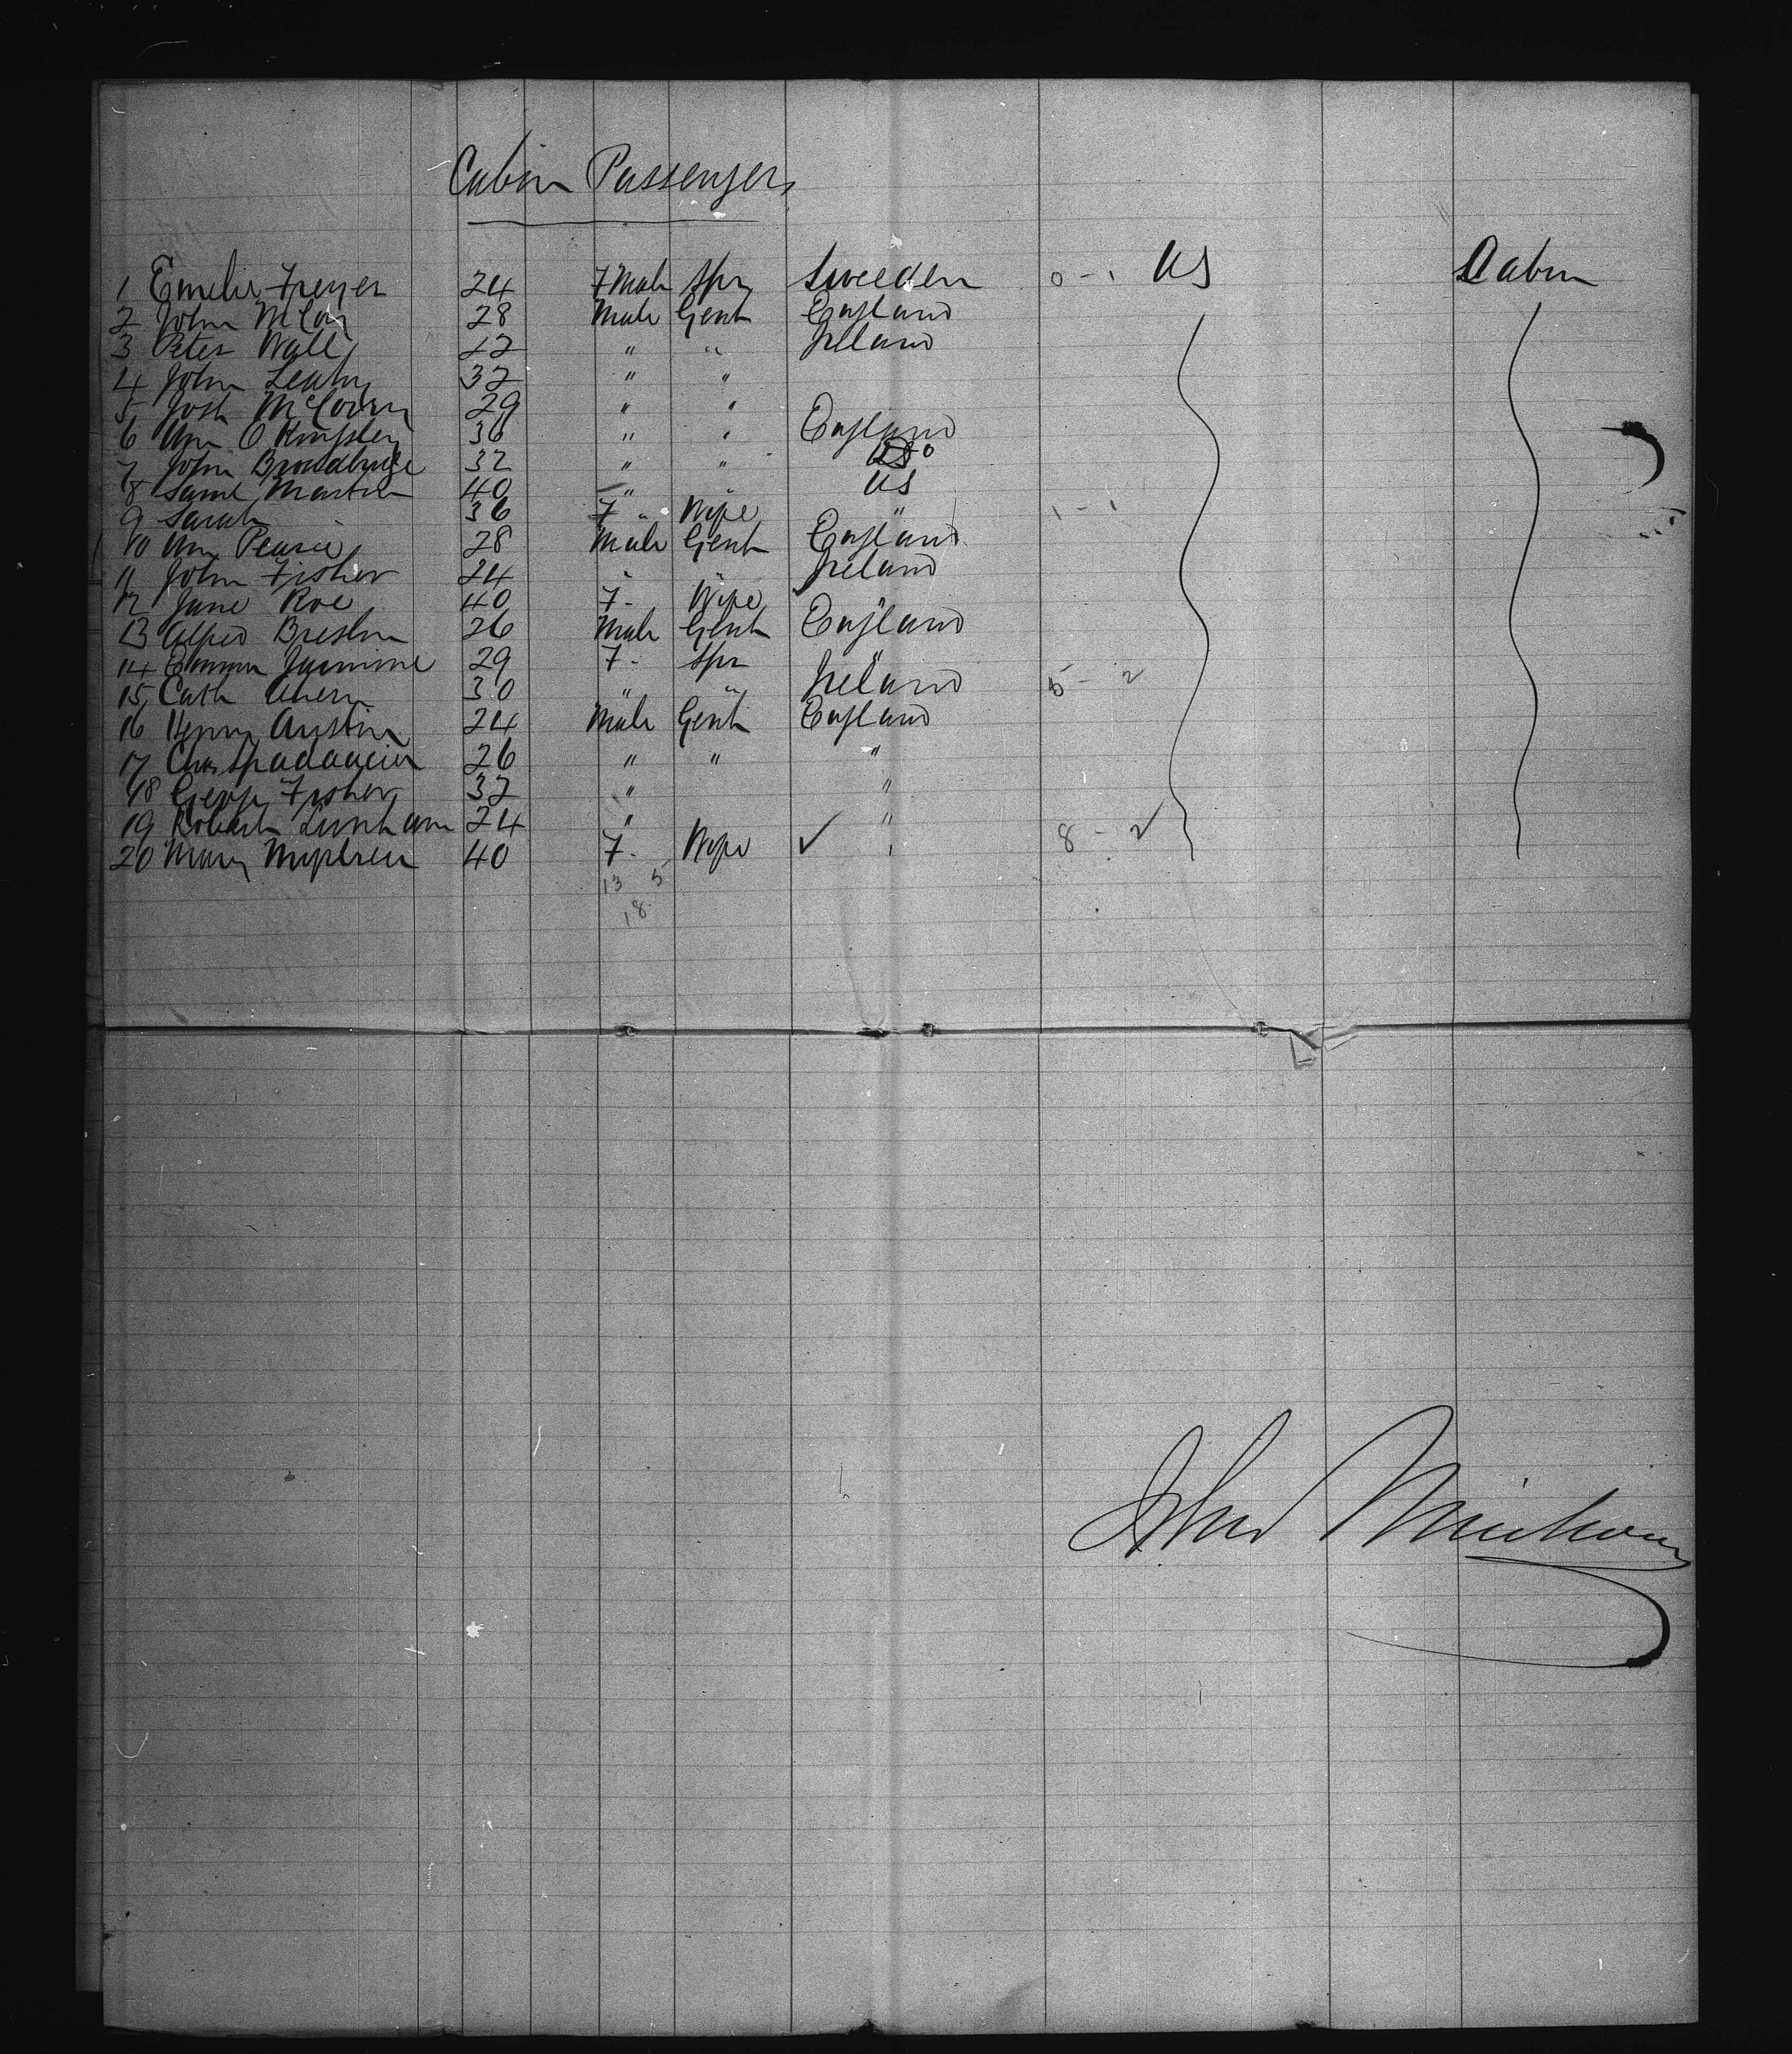 Cabin Passengers
1 Emelie Freyer 24 F Male Spr Sweeden 0 - 1 US Cabin
2 John McCoy 28 Male Gent England
3 Peter Wall 42 " " Ireland
4 John Leahy 32 " "
5 Josh McGovern 29 " "
6 Wm O Kingsley 36 " " England
7 John Broadbridge 32 " " Do
8 Saml Martin 40 " US
9 Sarah 36 F " Wife " 1 - 1
10 Wm Pearce 28 Male Gent England
11 John Fisher 24 " " Ireland
12 Jane Roe 40 F - Wife "
13 Alfred Breslin 26 Male Gent England
14 Emma 29 F - Spr "
15 Cath Ahern 30 " " Ireland 5 - 2
16 Henry Austin 24 Male Gent England
17 Chas 26 " " "
18 George Fisher 32 " "
19 Robert Lunham 24 " "
20 Mary 40 F - Wife ✓ " 8 - 2
13 5
18
John